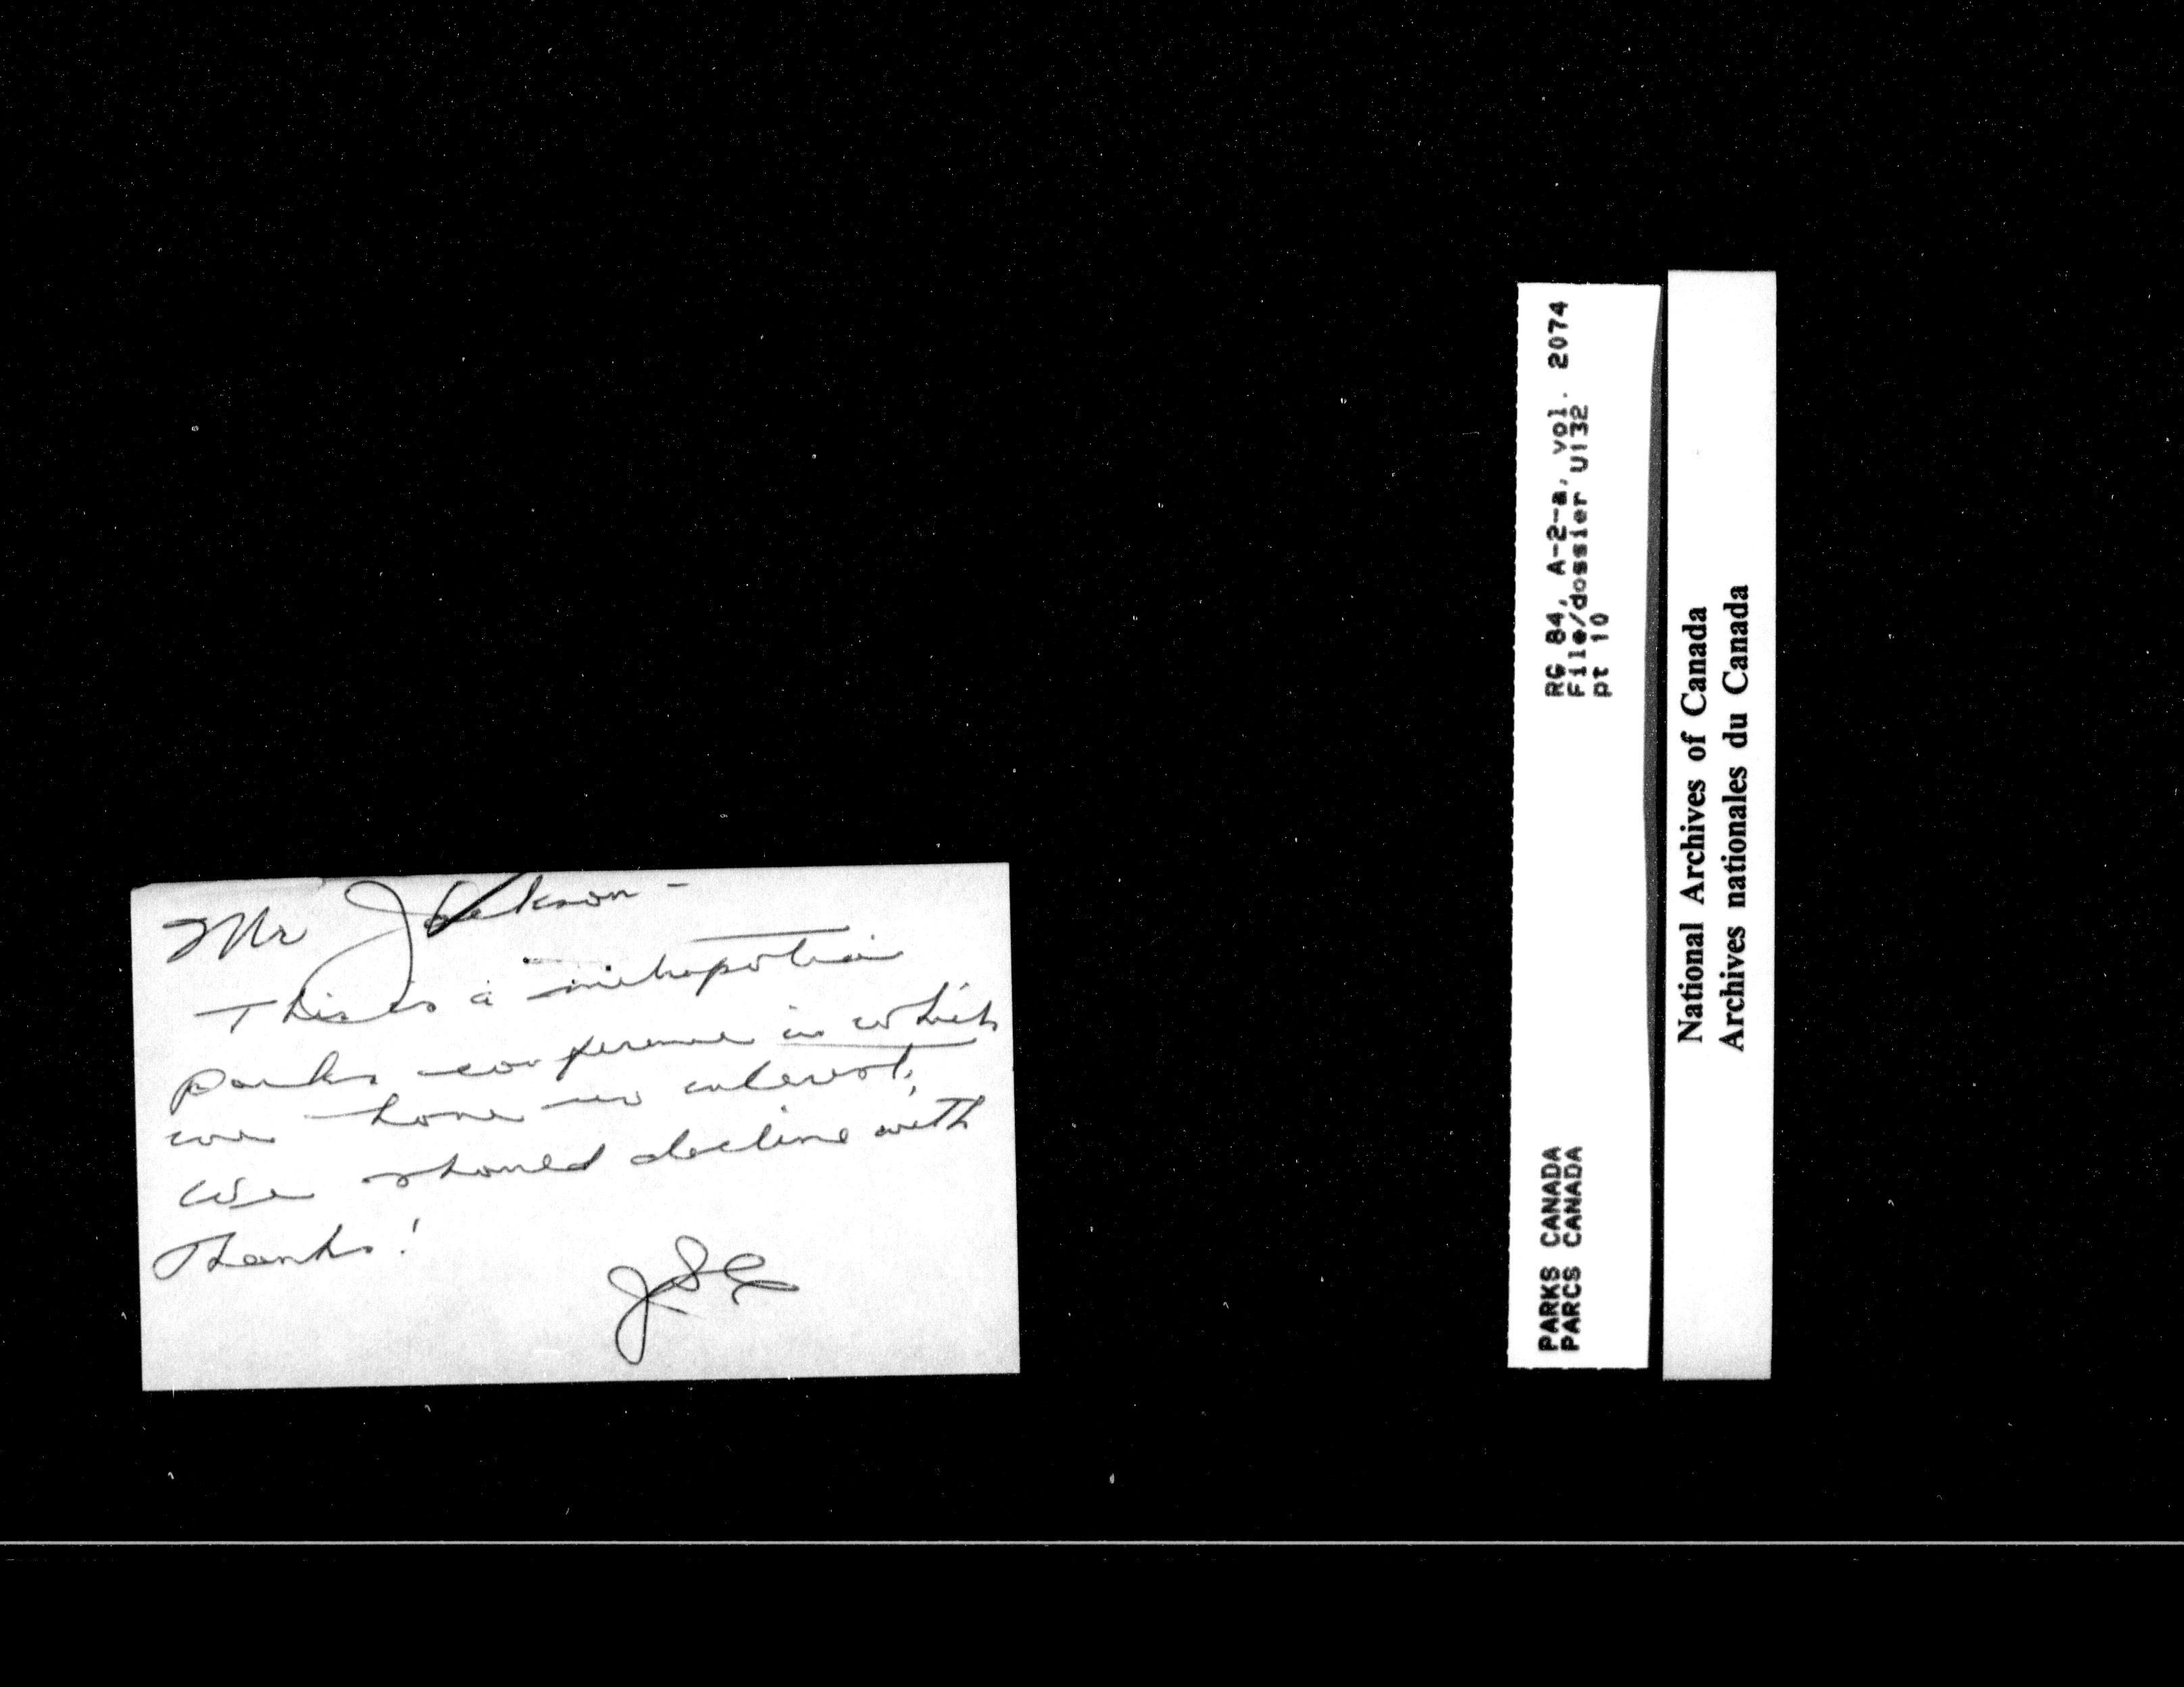 Mr Jackson -
This is a metropolitan
parks conference in which
we have no interest.
We should decline with
Thanks!
RG 84, A-2-a, vol. 2074
File/dossier U132
pt 10
PARKS CANADA
PARCS CANADA
National Archives of Canada
Archives nationales du Canada